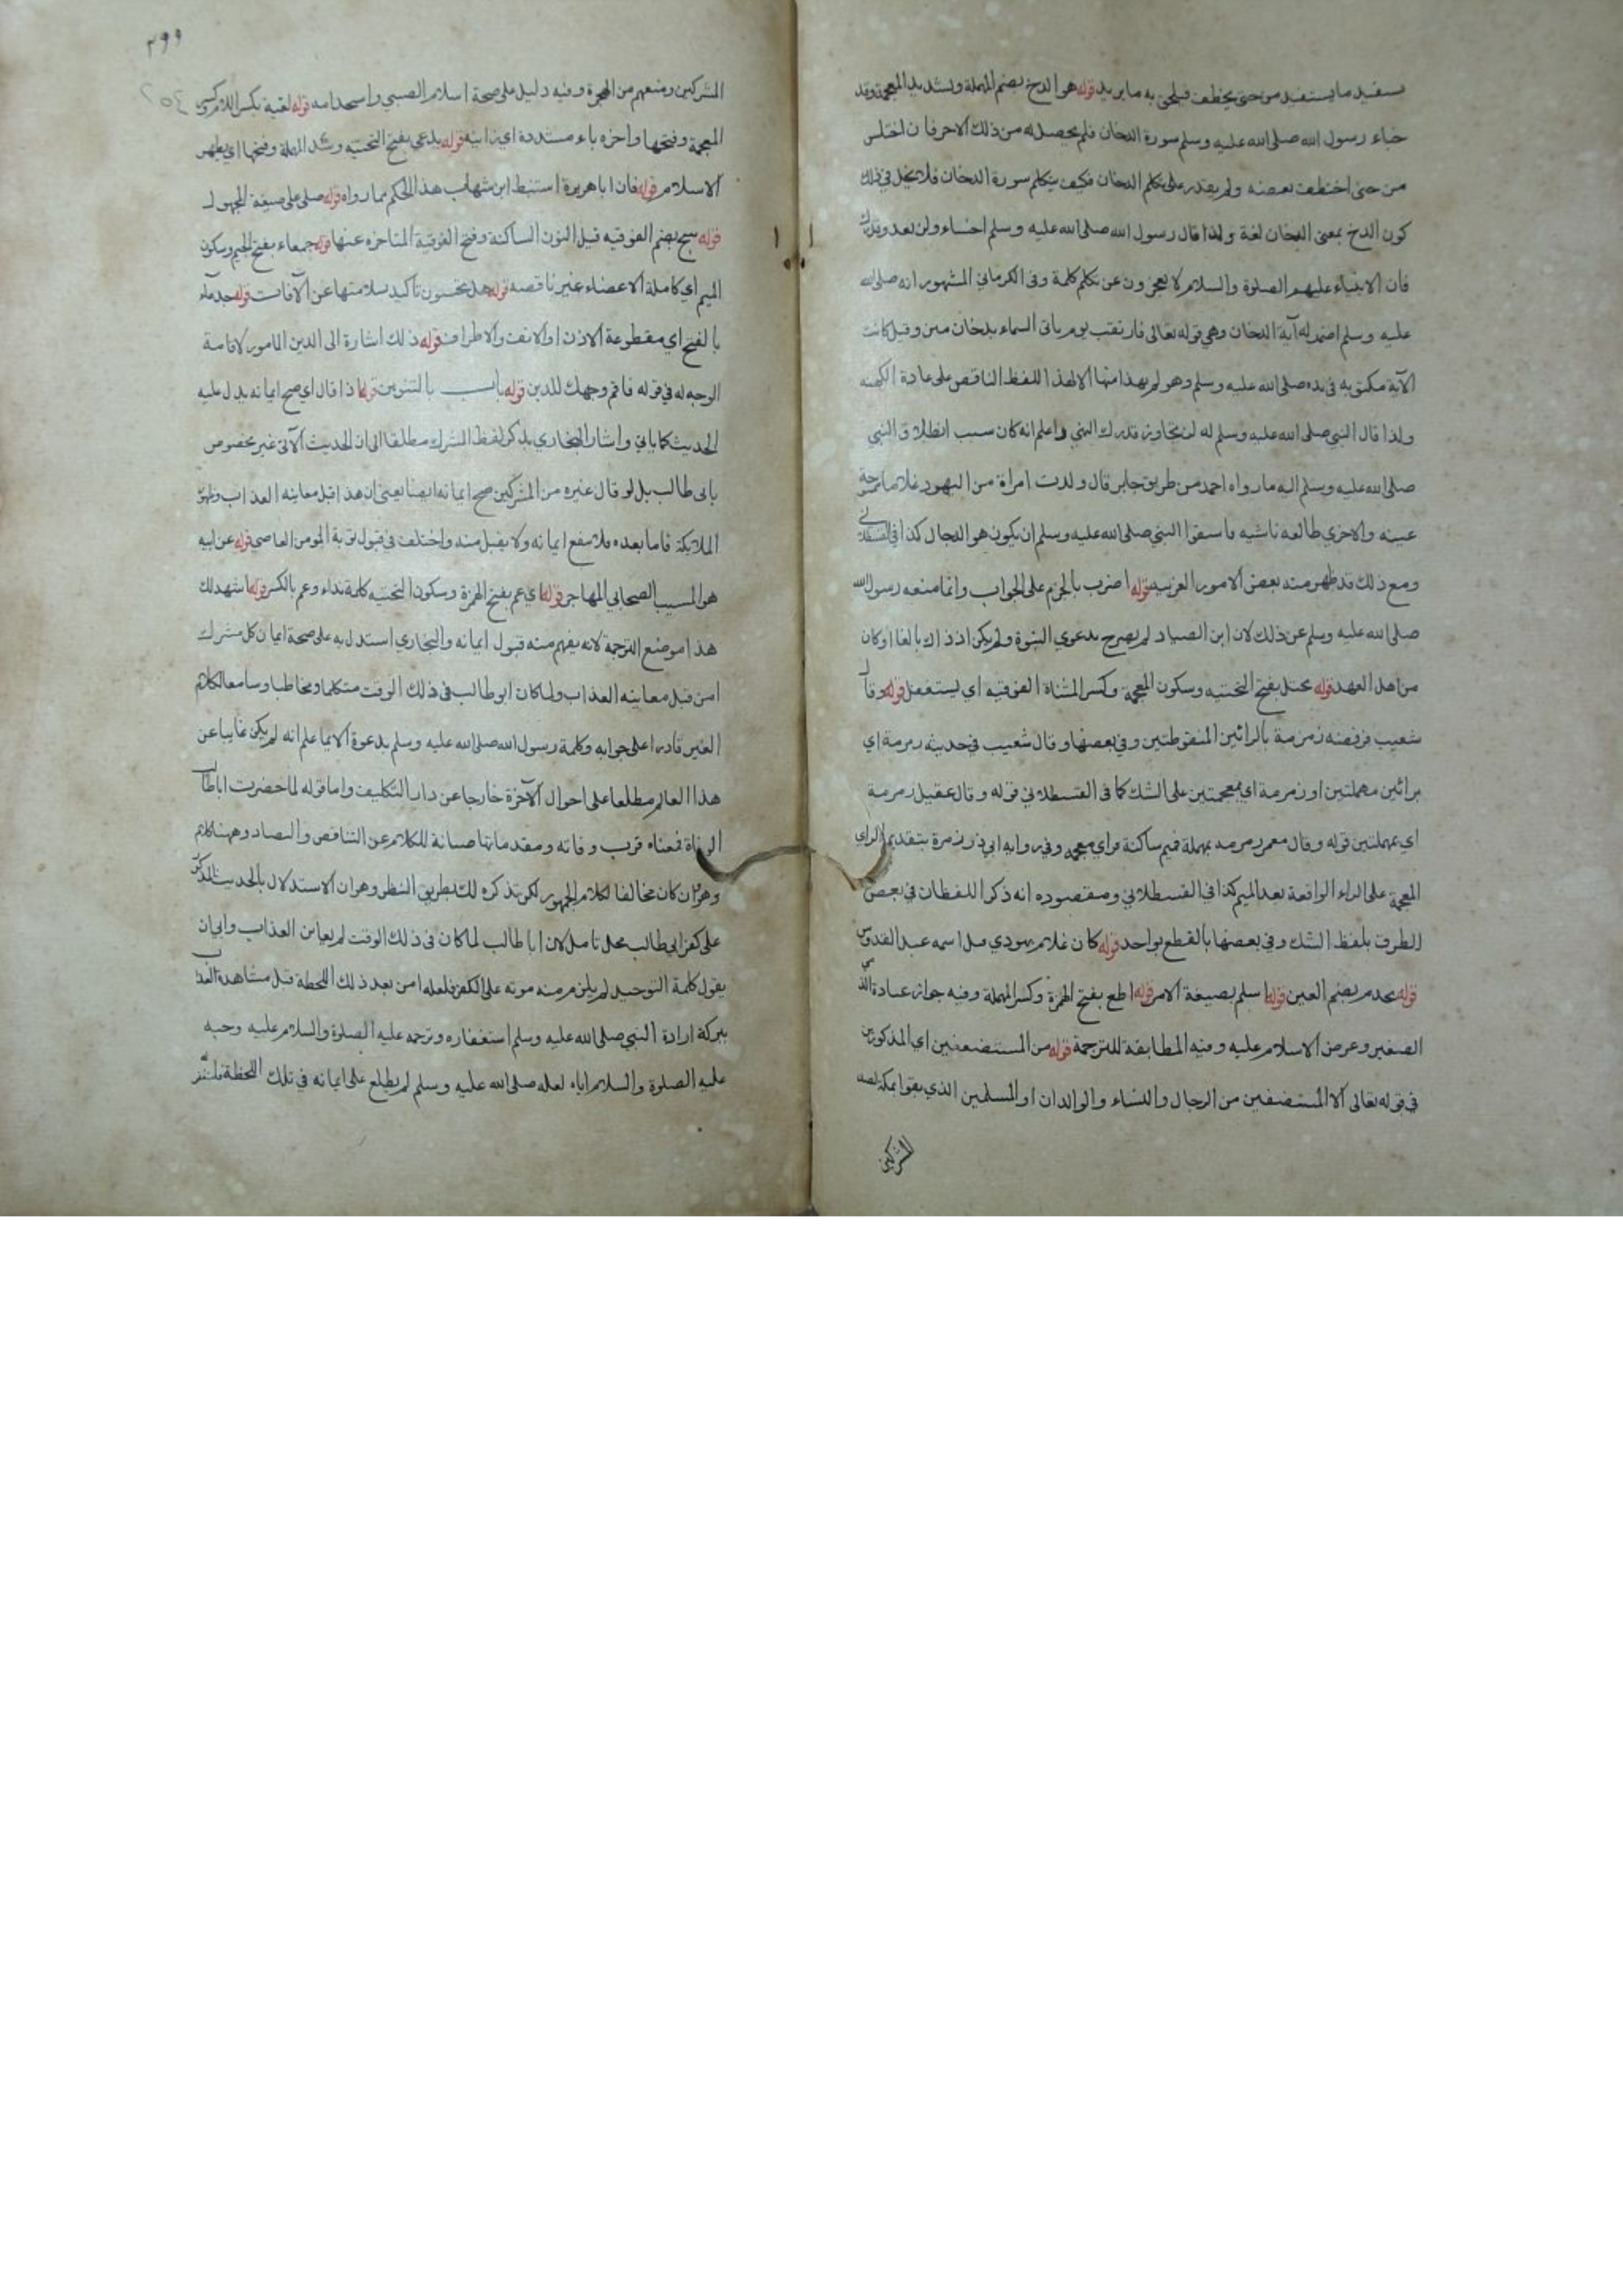 يستفيد ما يستفيد من حتى يخطف فيلحق به ما يريد قوله هو الدخ بضم المهملة وتشديد المعجمة وقد
خباء رسول الله صلى الله عليه وسلم سورة الدخان فلم يحصل له من ذلك الا حرفان اختلس
من حتى اختطف بعضه ولم يقدر على تكلم الدخان فكيف يتكلم سورة الدخان فلا يخل في ذلك
كون الدخ بمعنى الدخان لغة ولذا قال رسول الله صلى الله عليه وسلم اخساء ولن تعدو قدرك
فان الانبياء عليهم الصلوة والسلام لا يعجزون عن تكلم كلمة وفى الكرماني المشهور انه صلى الله
عليه وسلم اضمر له آية الدخان وهي قوله تعالى فارتقب يوم يأتى السماء بدخان مبين وقيل كانت
الآية مكتوبه فى يده صلى الله عليه وسلم وهو لم يهتد منها الا لهذا اللفظ الناقص على عادة الكهنه
ولذا قال النبي صلى الله عليه وسلم له لن يتجاوز قدرك النبي واعلم انه كان سبب انطلاق النبي
صلى الله عليه وسلم اليه ما رواه احمد من طريق جابر قال ولدت امراة من اليهود غلاما ممسوحة
عينه والاخرى طالعه ناشيه فاسقوا النبي صلى الله عليه وسلم ان يكون هو الدجال كذا في القسطلاني
ومع ذلك قد ظهر منه بعض الامور الغريبه قوله اضرب بالجزم على الجواب وانما منعه رسول الله
صلى الله عليه وسلم عن ذلك لان ابن الصياد لم يصرح بدعوي النبوة ولم يكن اذ ذاك بالغا او كان
من اهل العهد قوله يختل بفتح التحتيه وسكون المعجمة وكسر المثناة الفوقيه اي يستغفل قوله وقال
شعيب فرفضه زمزمة بالرائين المنقوطتين وفي بعضها وقال شعيب في حديثه رمرمة اي
برائين مهملتين او زمزمة اي بمعجمتين على الشك كما فى القسطلاني قوله وقال عقيل رمرمة
اي بمهملتين قوله وقال معمر رمزمه بمهملة فميم ساكنة فزاي معجمه وفي روايه ابي ذر زمرة بتقديم الزاي
المعجمة على الراء الواقعة بعد الميم كذا في القسطلاني ومقصوده انه ذكر اللفظان في بعض
الطرق بلفظ الشك وفي بعضها بالقطع بواحد قوله كان غلام يهودي قيل اسمه عبد القدوس
قوله يخدم بضم العين قوله اسلم بصيغة الامر قوله اطع بفتح الهمزة وكسر المهملة وفيه جواز عيادة الذمي
الصغير وعرض الاسلام عليه وفيه المطابقة للترجمة قوله من المستضعفين اي المذكورين
في قوله تعالى الا المستضعفين من الرجال والنساء والوالدان او المسلمين الذي بقوا بمكة لصد
المشركين
٢٩٩
المشركين ومنعهم من الهجرة وفيه دليل على صحة اسلام الصبي واستخدامه قوله لغية بكسر اللام وكسر
المعجمة وفتحها واخره ياء مشددة اي زانيه قوله يدعي بفتح التحتيه وشد المهملة وفتحها اي يظهر
الاسلام قوله فان ابا هريرة استنبط ابن شهاب هذا الحكم مما رواه قوله صلى على صيغة المجهول
قوله تنتج بضم الفوقيه قبل النون الساكنة وفتح الفوقية المتاخره عنها قوله جمعاء بفتح الجيم وسكون
الميم اي كاملة الاعضاء غير ناقصه قوله هل تحسون تأكيد سلامتها عن الآفات قوله جدعاء
بالفتح اي مقطوعة الاذن او الانف والاطراف قوله ذلك اشارة الى الدين المامور لاقامة
الوجه له في قوله فاقم وجهك للدين قوله باب بالتنوين قوله اذا قال اي صح ايمانه يدل عليه
الحديث كما ياتي واشار البخاري بذكر لفظ المشرك مطلقا الى ان الحديث الآتى غير مخصوص
بابى طالب بل لو قال غيره من المشركين صح ايمانه ايضا يعني ان هذا قبل معاينه العذاب وظهور
الملائكة فاما بعده فلا ينفع ايمانه ولا يقبل منه واختلف في قبول توبة المومن العاصي قوله عن ابيه
هو المسيب الصحابي المهاجر قوله اي عم بفتح الهمزة وسكون التحتيه كلمة نداء وعم بالكسر قوله اشهد لك
هذا موضع الترجمة لانه يفهم منه قبول ايمانه والبخاري استدل به على صحة ايمان كل مشرك
امن قبل معاينه العذاب ولما كان ابو طالب فى ذلك الوقت متكلما ومخاطبا وسامعا لكلام
الغير قادرا على جوابه وكلمة رسول الله صلى الله عليه وسلم بدعوة الايما علم انه لم يكن غايبا عن
هذا العالم مطلعا على احوال الآخرة خارجا عن دار التكليف واما قوله لما حضرت اباطالب
الوفاة فمعناه قرب وفاته ومقدماتها صيانة للكلام عن التناقض والتضاد وههنا كلام
وهو ان كان مخالفا لكلام الجمهور لكن نذكره لك بطريق النظر وهو ان الاستدلال بالحديث المذكور
على كفر ابي طالب محل تامل لان ابا طالب لما كان فى ذلك الوقت لم يعاين العذاب وابي ان
يقول كلمة التوحيد لم يلزم منه موته على الكفر فلعله امن بعد ذلك اللحظة قبل مشاهدة العذاب
ببركة ارادة النبي صلى الله عليه وسلم استغفاره وترحمه عليه الصلوة والسلام عليه وحبه
عليه الصلوة والسلام اياه لعله صلى الله عليه وسلم لم يطلع على ايمانه في تلك اللحظة